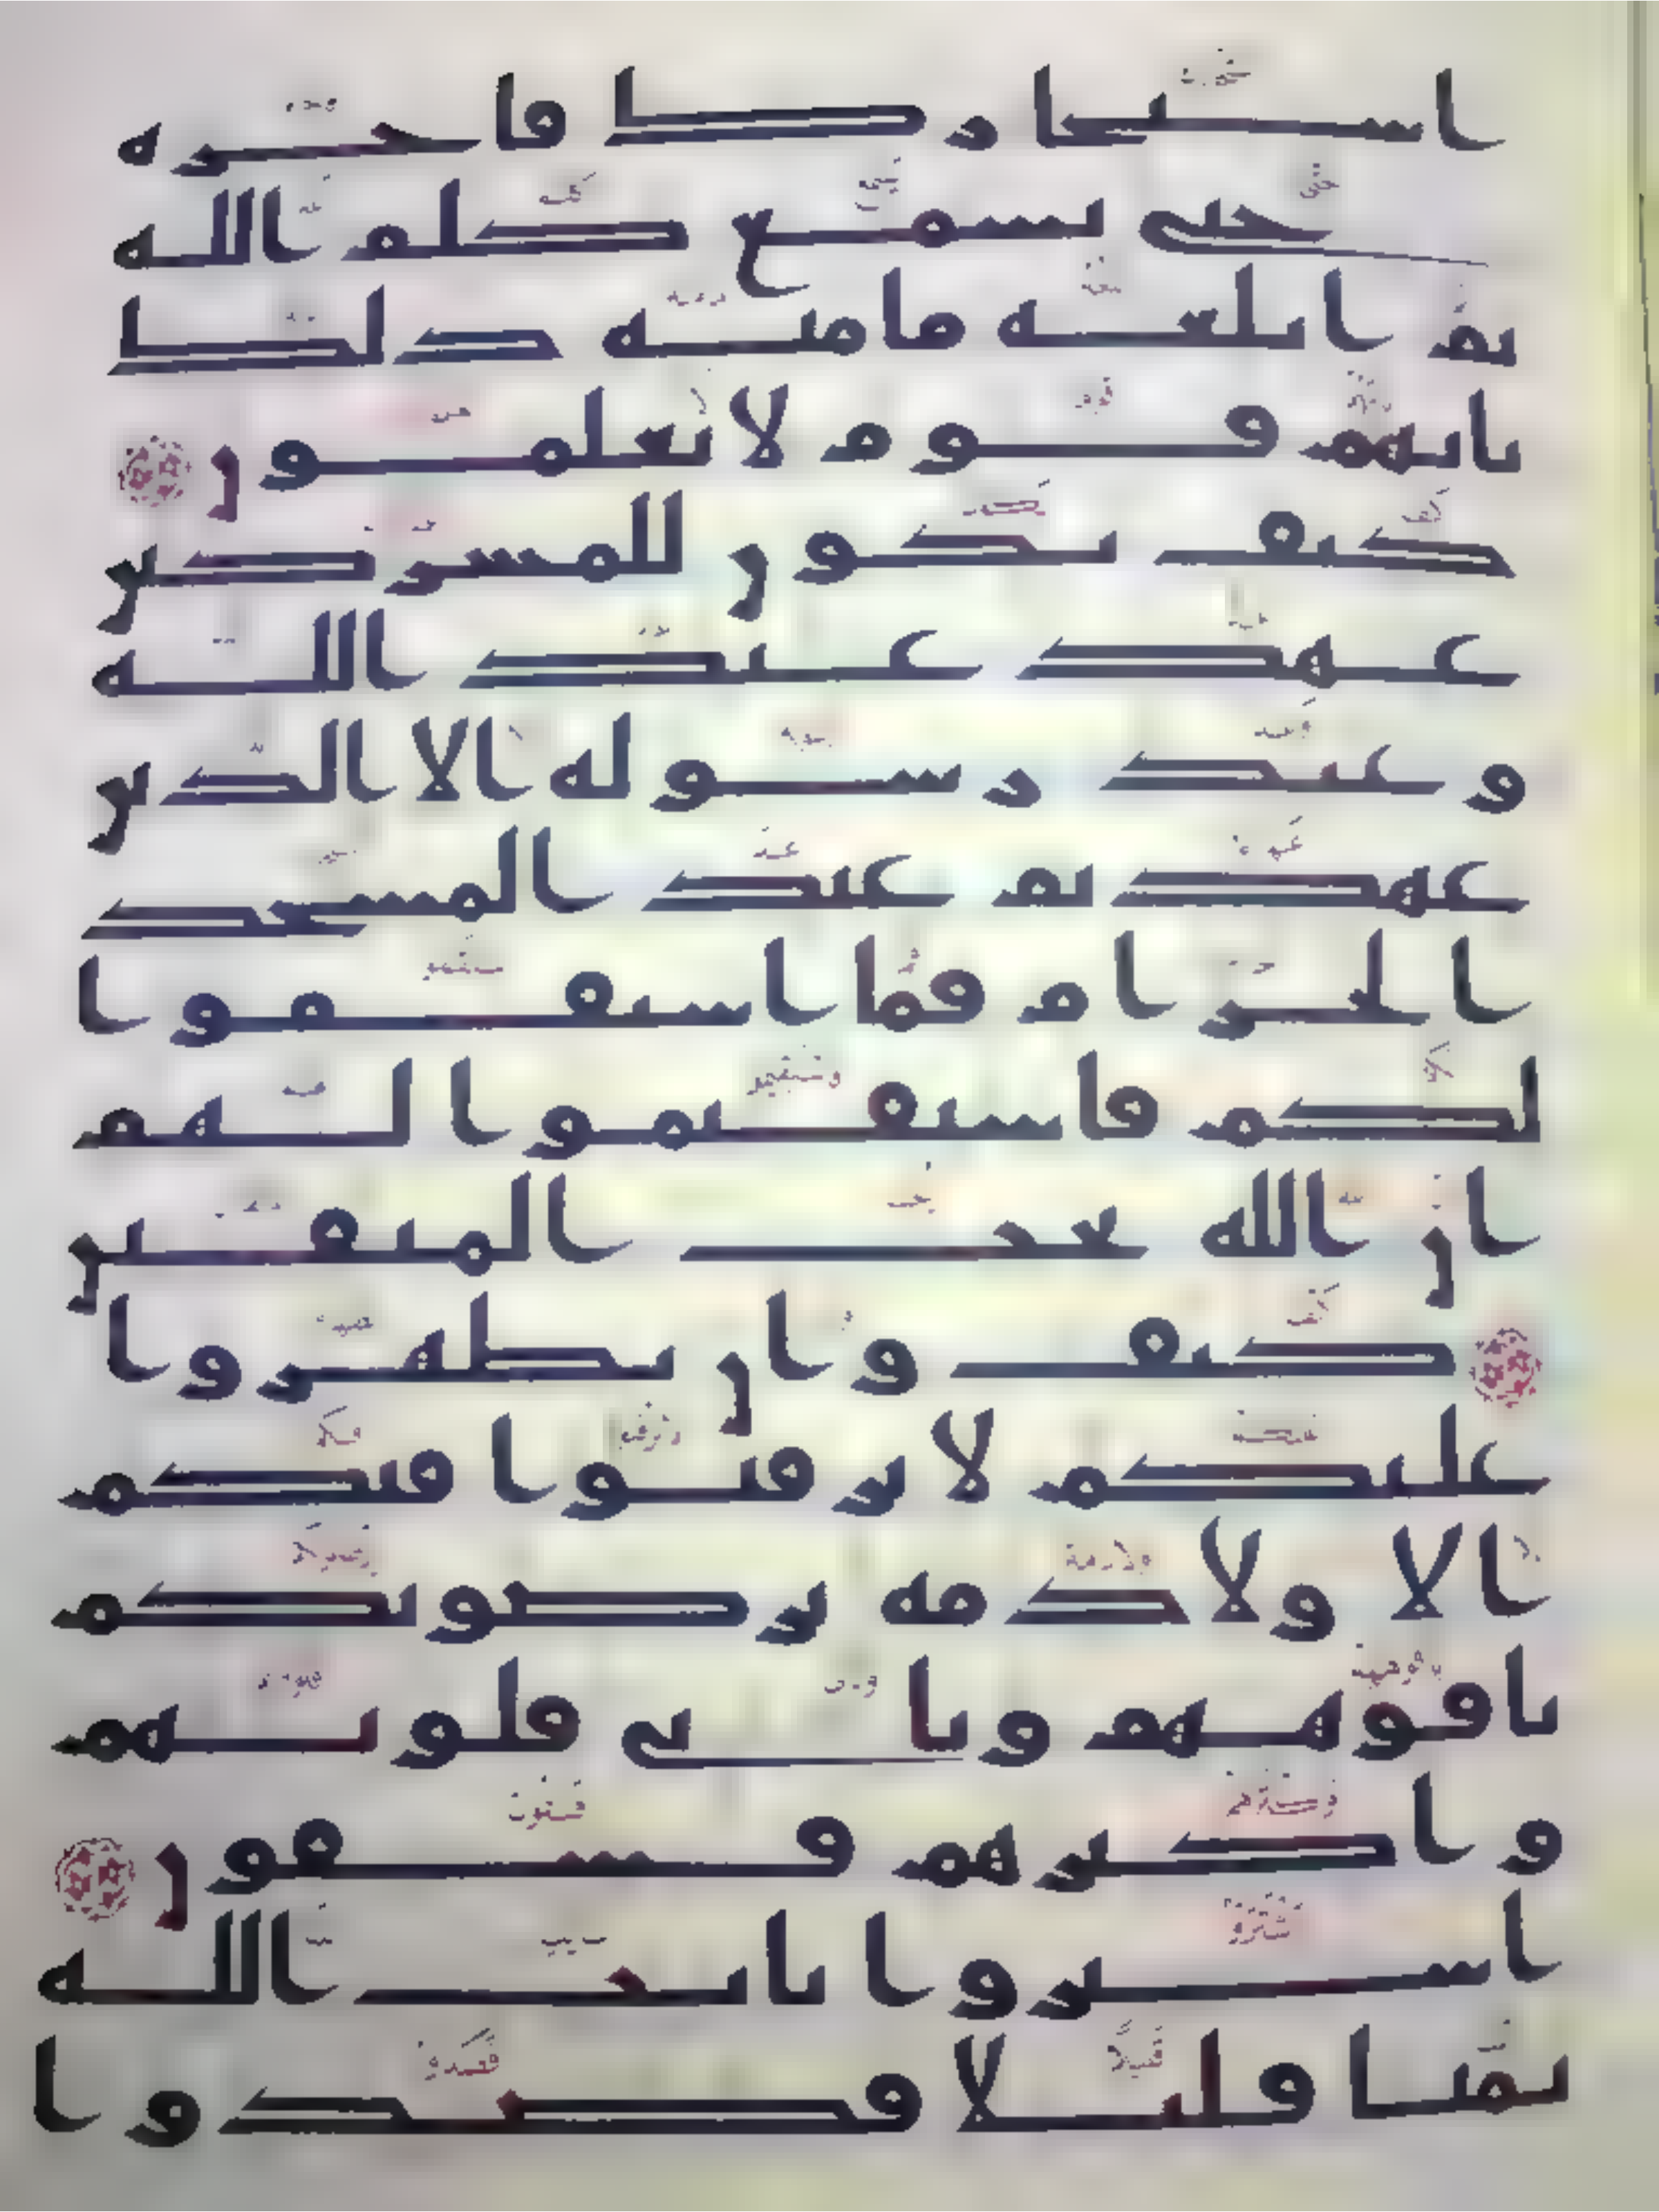 استجارك فاجره
حتى يسمع كلم الله
ثم ابلغه مامنه ذلك
بانهم قوم لا يعلمون
كيف يكون للمشركين
عهد عند الله
وعند رسوله الا الذين
عهدتم عند المسجد
الحرام فما استقموا
لكم فاستقيموا لهم
ان الله يحب المتقين
كيف وان يظهروا
عليكم لا يرقبوا فيكم
الا ولا ذمه يرضونكم
بافوههم وتابى قلوبهم
واكثرهم فسقون
اشتروا بايت الله
ثمنا قليلا فصدوا